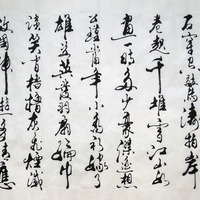 石穿空驚濤拍岸
卷起千堆雪江山如
畫一時多少豪傑遙想
公瑾當年小喬初嫁了
雄姿英發羽扇綸巾
談笑間檣櫓灰飛煙滅
故國神遊多情應